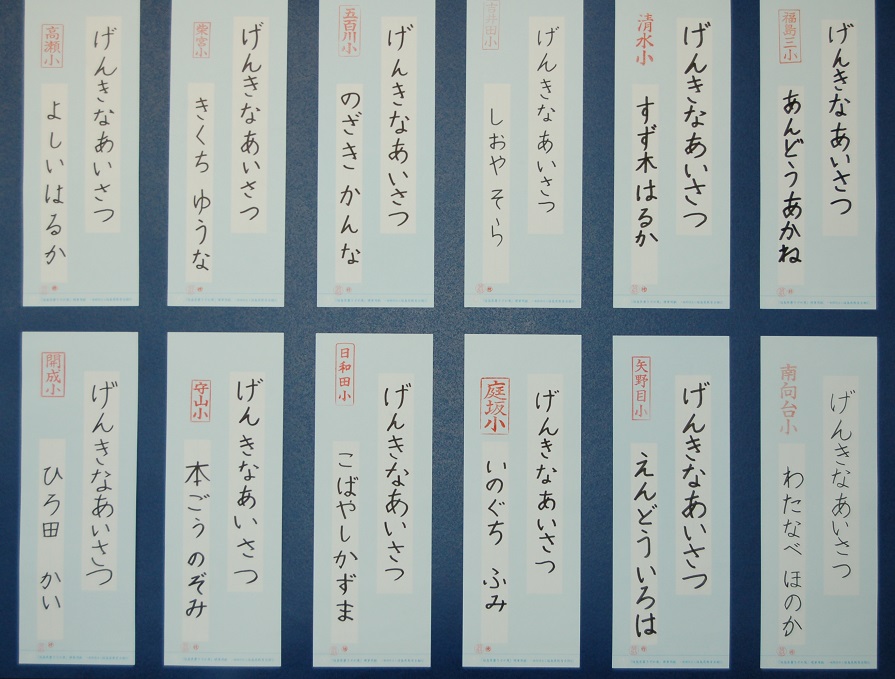 げんきなあいさつ
福島三小
あんどうあかね
げんきなあいさつ
清水小
すず木はるか
げんきなあいさつ
吉井田小
しおや そら
げんきなあいさつ
五百川小
のざき かんな
げんきなあいさつ
柴宮小
きくち ゆうな
げんきなあいさつ
高瀬小
よしいはるか
げんきなあいさつ
南向台小
わたなべ ほのか
げんきなあいさつ
矢野目小
えんどういろは
げんきなあいさつ
庭坂小
いのぐち ふみ
げんきなあいさつ
日和田小
こばやしかずま
げんきなあいさつ
守山小
本ごう のぞみ
げんきなあいさつ
開成小
ひろ田 かい